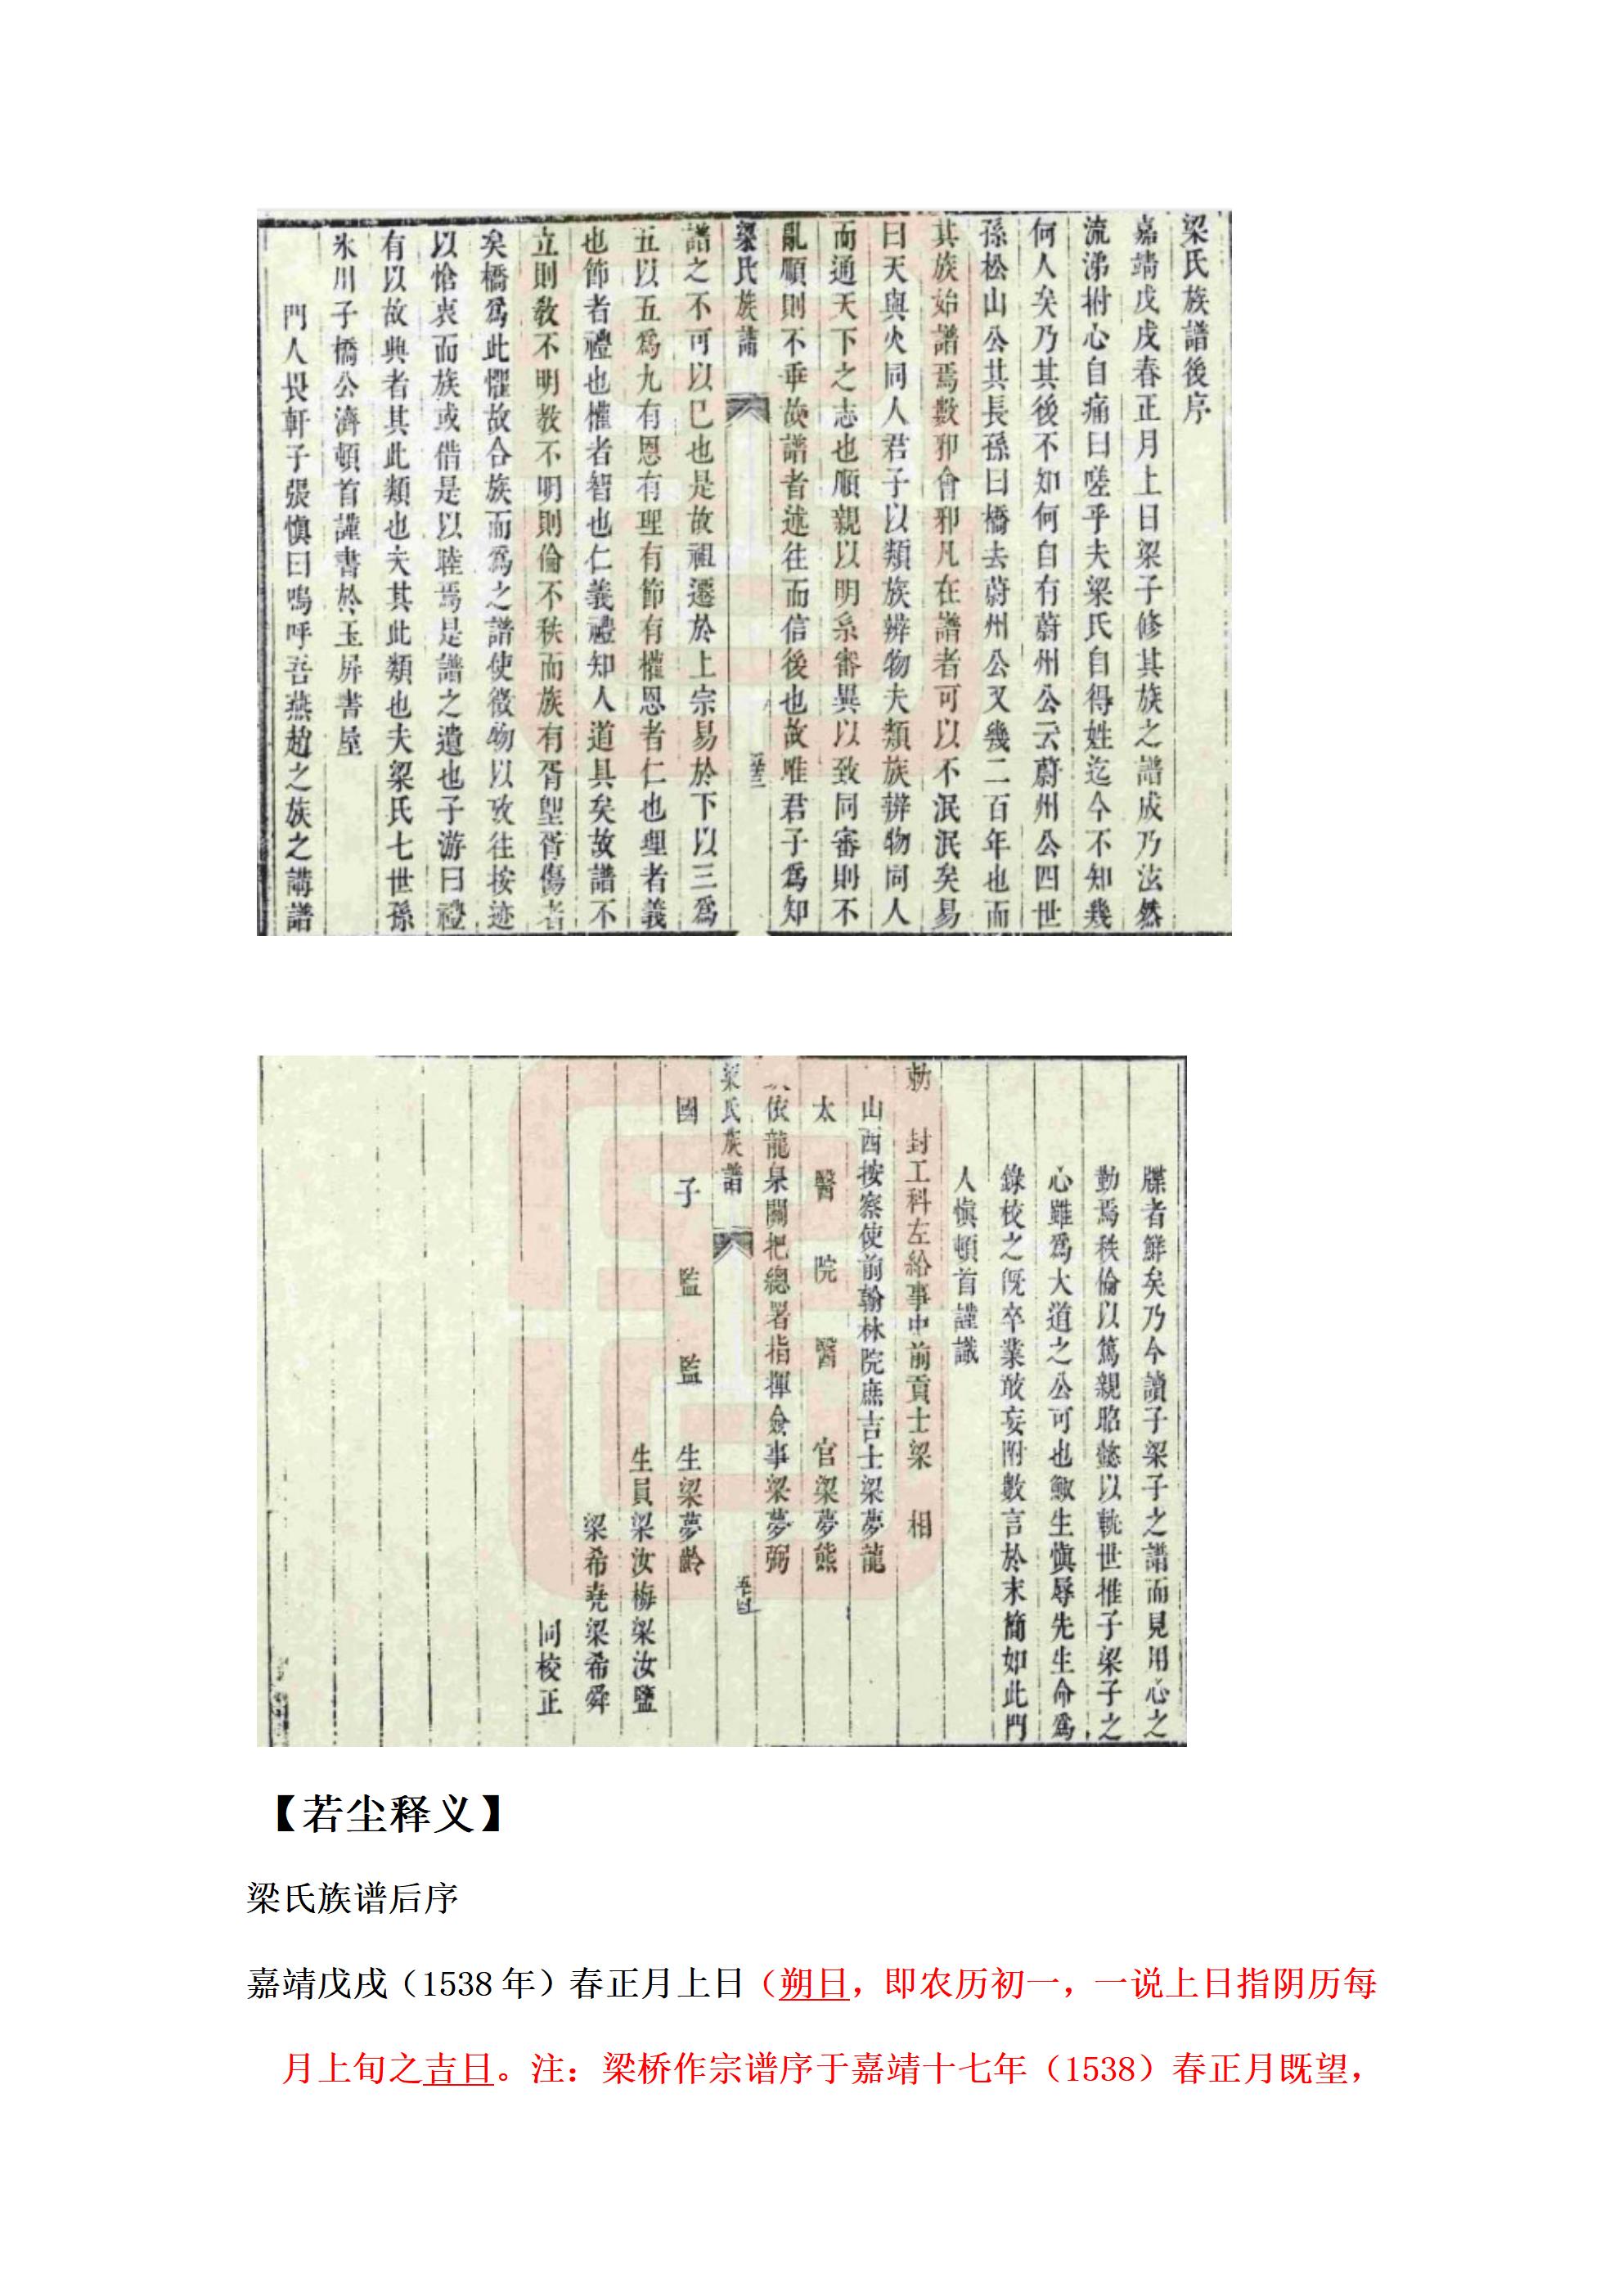 梁氏族譜後序
嘉靖戊戌春正月上日梁子修其族之譜成乃泫然
流涕拊心自痛曰嗟乎夫梁氏自得姓迄今不知幾
何人矣乃其後不知何自有蔚州公云蔚州公四世
孫松山公其長孫曰橋去蔚州公又幾二百年也而
其族始譜焉數邪會邪凡在譜者可以不泯泯矣易
曰天與火同人君子以類族辨物夫類族辨物同人
而通天下之志也順親以明系審異以致同審則不
亂順則不乖故譜者述往而信後也故唯君子爲知
梁氏族譜
譜之不可以已也是故祖遷於上宗易於下以三爲
五以五爲九有恩有理有節有權恩者仁也理者義
也節者禮也權者智也仁義禮知人道具矣故譜不
立則教不明教不明則倫不秩而族有胥朢胥傷者
矣橋爲此懼故合族而爲之譜使徵物以攷往按迹
以愴衷而族或借是以睦焉是譜之遺也子游曰禮
有以故興者其此類也夫其此類也夫梁氏七世孫
氷川子橋公濟頓首謹書於玉屏書屋
門人畏軒子張愼曰嗚呼吾燕趙之族之講譜
牒者鮮矣乃今讀子梁子之譜而見用心之
勤焉秩倫以篤親昭懿以軌世推子梁子之
心雖爲大道之公可也鯫生愼辱先生命爲
錄校之旣卒業敢妄附數言於末簡如此門
人愼頓首謹識
勅封工科左給事中前貢士梁相
山西按察使前翰林院庶吉士梁夢龍
太醫院醫官梁夢熊
依龍泉關把總署指揮僉事梁夢弼
梁氏族譜
國子監監生梁夢齡
生員梁汝梅梁汝鹽
梁希堯梁希舜
同校正
【若尘释义】
梁氏族谱后序
嘉靖戊戌（1538 年）春正月上日（朔日，即农历初一，一说上日指阴历每
月上旬之吉日。注：梁桥作宗谱序于嘉靖十七年（1538）春正月既望，